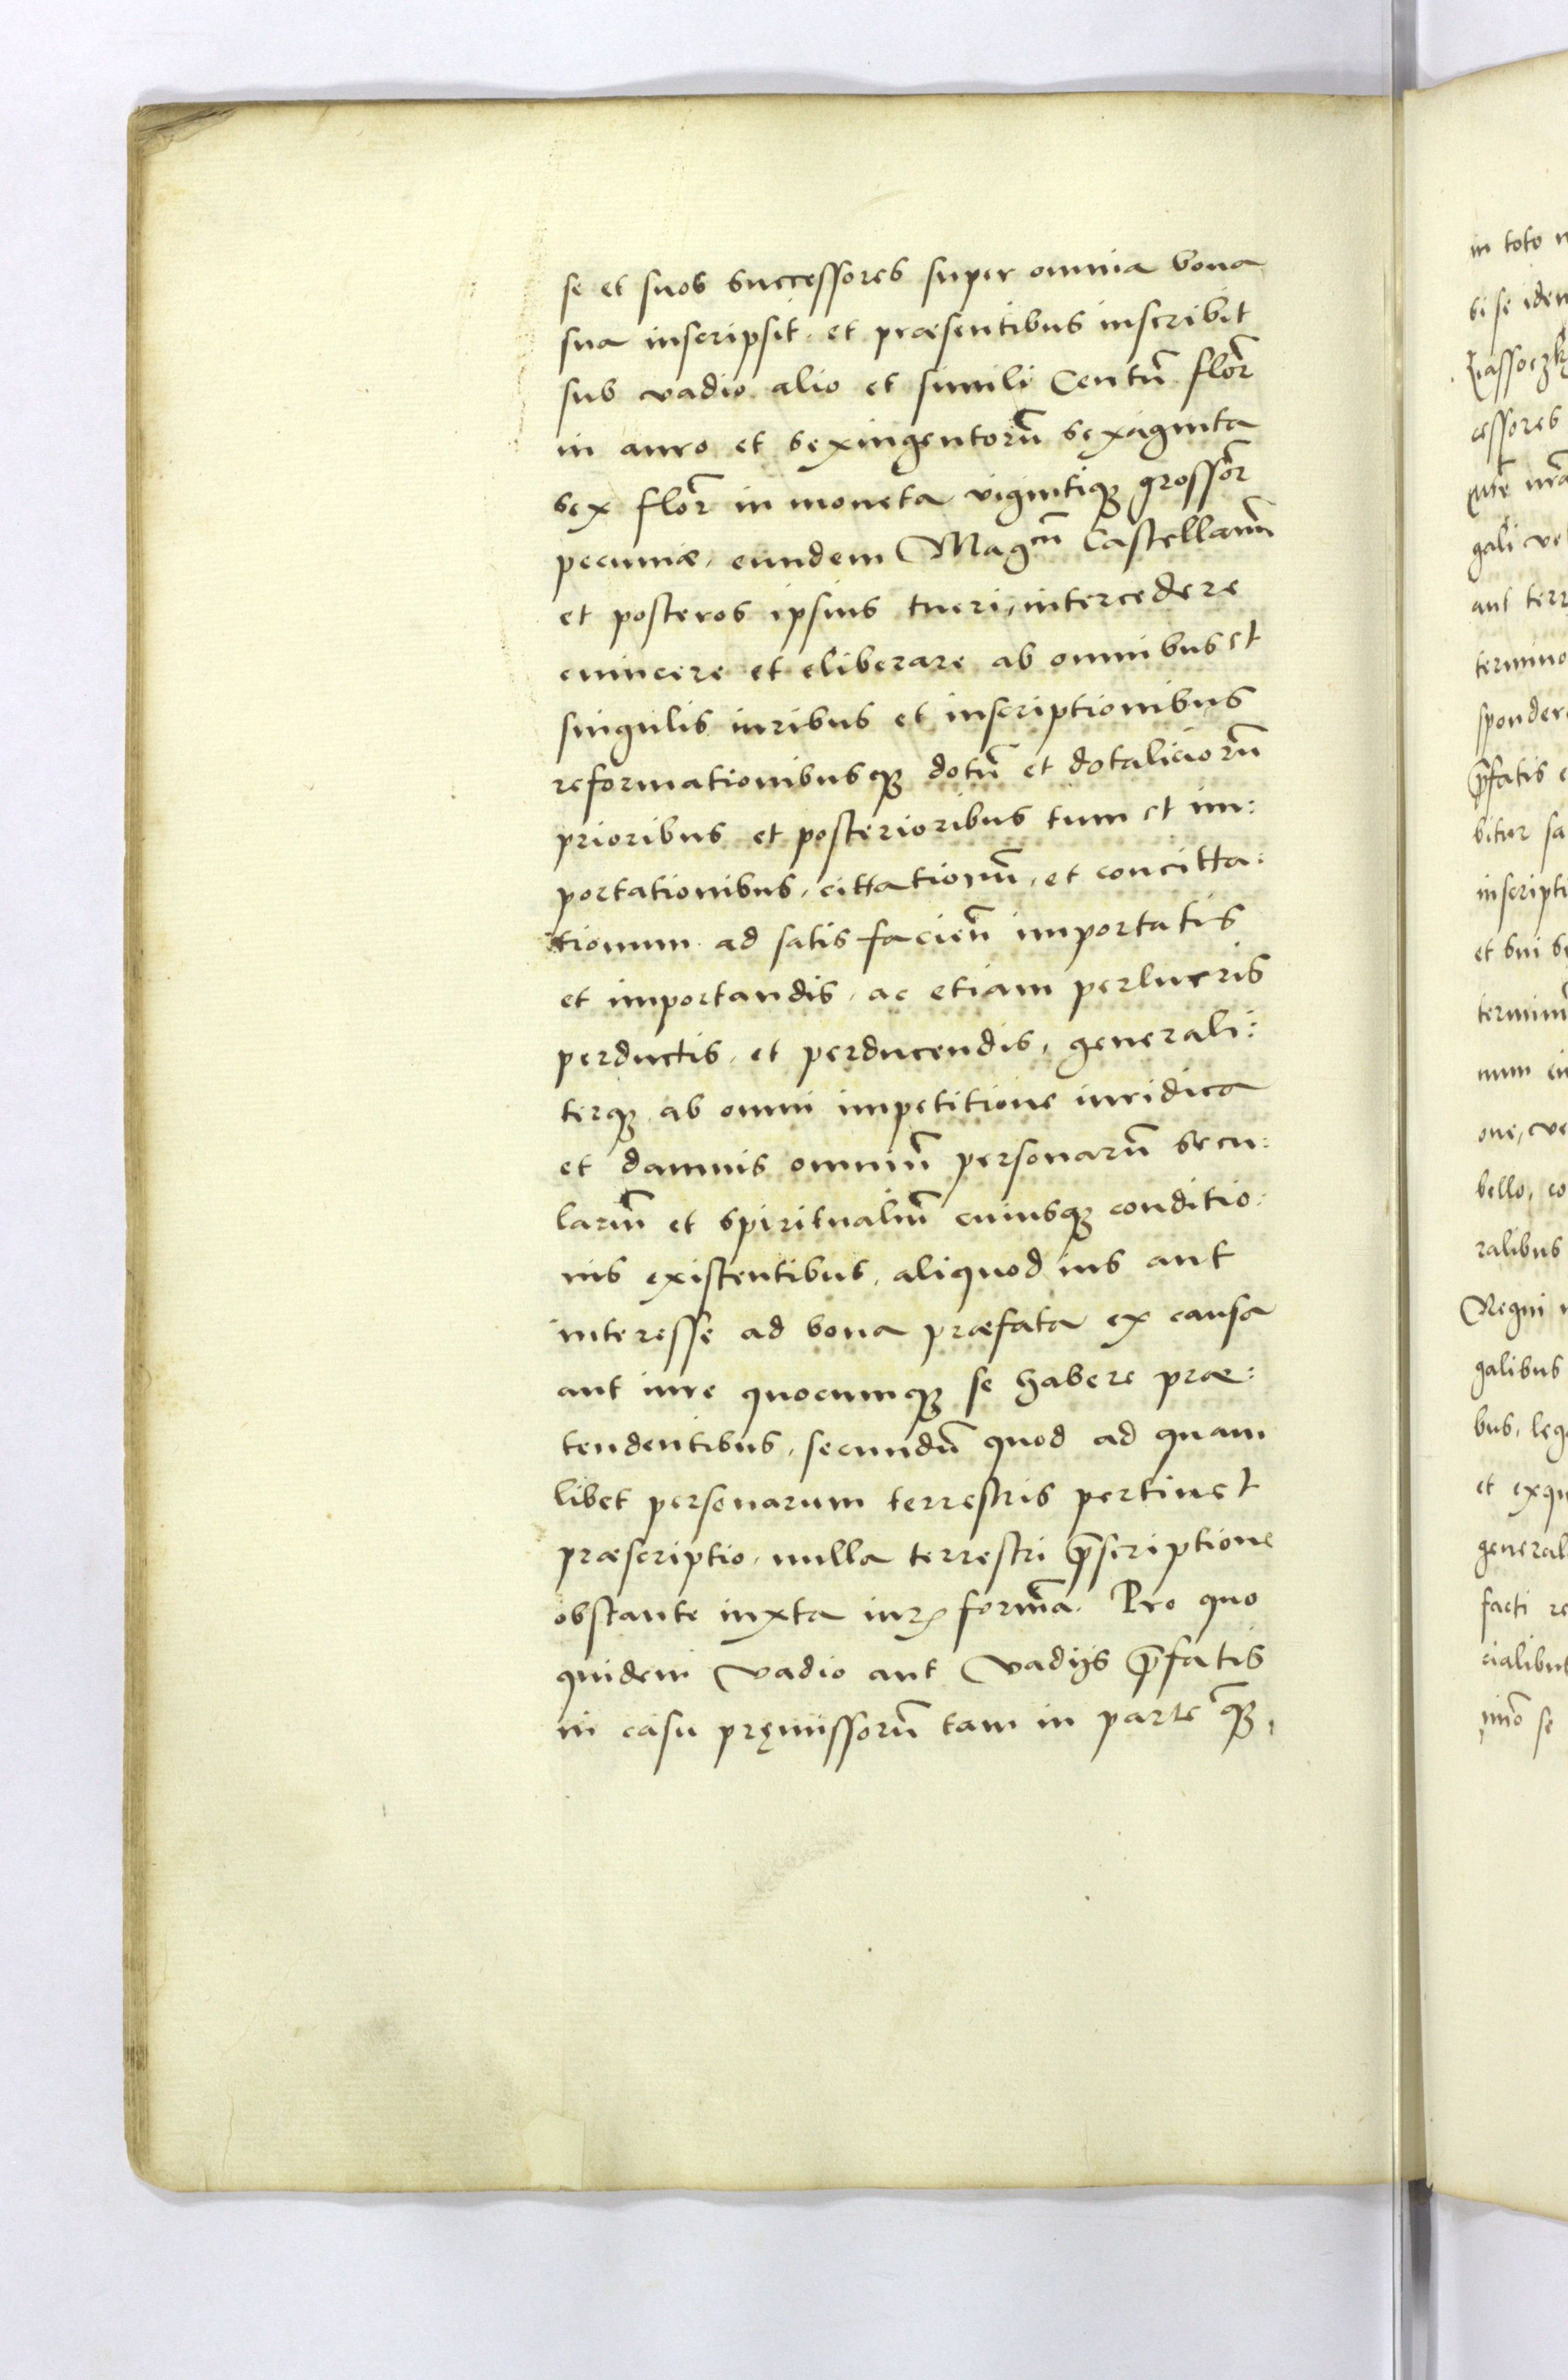 se et suos successores super omnia bona
sua inscripsit et præsentibus inscribit
sub vadio alio et simili Centū flor̄
in auro et sexingentorū sexaginta
sex flor̄ in moneta vigintiqꝫ grossor̄
pecuniæ, eundem Magcū Castellanū
et posteros ipsius tueri, intercedere
euincere et eliberare ab omnibus et
singulis iuribus et inscriptionibus
reformationibusqꝫ dotū et dotaliciorū
prioribus et posterioribus tum et im:
portationibus, cittationū, et concitta:
tionum ad satis facien̄ importatis
et importandis, ac etiam perlucris
perductis, et perducendis, generali:
terqꝫ ab omni impetitione iuridica
et damnis omniū personarū secu:
lariū et spiritualiū cuiusqꝫ conditio:
nis existentibus, aliquod ius aut
interesse ad bona præfata ex causa
aut iure quocumqꝫ se habere præ:
tendentibus, secundū quod ad quam
libet personarum terrestris pertinet
præscriptio, nulla terrestri p̄scriptione
obstante iuxta iurꝭ formā. Pro quo
quidem vadio aut vadijs p̄fatis
in casu pręmissorū tam in parte q̄ꝫ,
in toto
si se iden
cessores
gali ve
aut terr
termino
sponder
p̄fatis
bitur sa
inscripti
et sui
terminū
num
one, ve
bello, co
ralibus
Regni
galibus
bus, leg
et exqu
general
facti re
cialibus